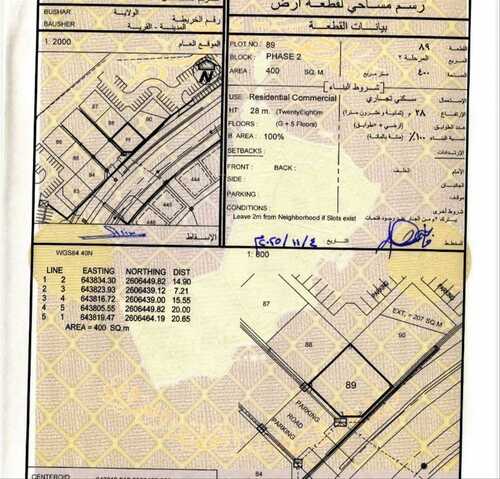 رسم مساحي لقطعة أرض
BUSHAR
الولاية
BAUSHER
المدينة - القرية
رقم الخريطة
بيانات القطعة
1: 2000
الموقع العام
PLOT NO : 89
٨٩
القطعة
BLOCK : PHASE 2
المرحلة ٢
AREA : 400 SQ. M
متر مربع
٤٠٠
المساحة
شروط البناء
USE Residential Commercial
سكني تجاري
الاستعمال
HT 28 m. (TwentyEight)m
٢٨ م (ثمانية وعشرون مترا)
الارتفاع
FLOORS : (G + 5 Floors)
(أرضي + ٥ طوابق)
عدد الطوابق
B. AREA : 100%
١٠٠٪ (مائة بالمائة)
نسبة البناء
SETBACKS :
الارتدادات
FRONT : BACK :
الخلف
الأمام
SIDE :
الجانبان
PARKING :
موقف
CONDITIONS :
شروط أخرى
Leave 2m from Neighborhood if Slots exist
يترك ٢م من الجار عند وجود فتحات
الإسقاط
٢٠٢٥/١١/٤
التاريخ
المخطط
WGS84 40N
1: 800
LINE EASTING NORTHING DIST
1 2 643834.30 2606449.82 14.90
2 3 643823.93 2606439.12 7.21
3 4 643816.72 2606439.00 15.55
4 5 643805.55 2606449.82 20.00
5 1 643819.47 2606464.19 20.65
AREA = 400 SQ.m
87
88
89
90
EXT. = 207 SQ.M
PARKING
PARKING
PARKING
ROAD
PARKING
84
CENTEROID